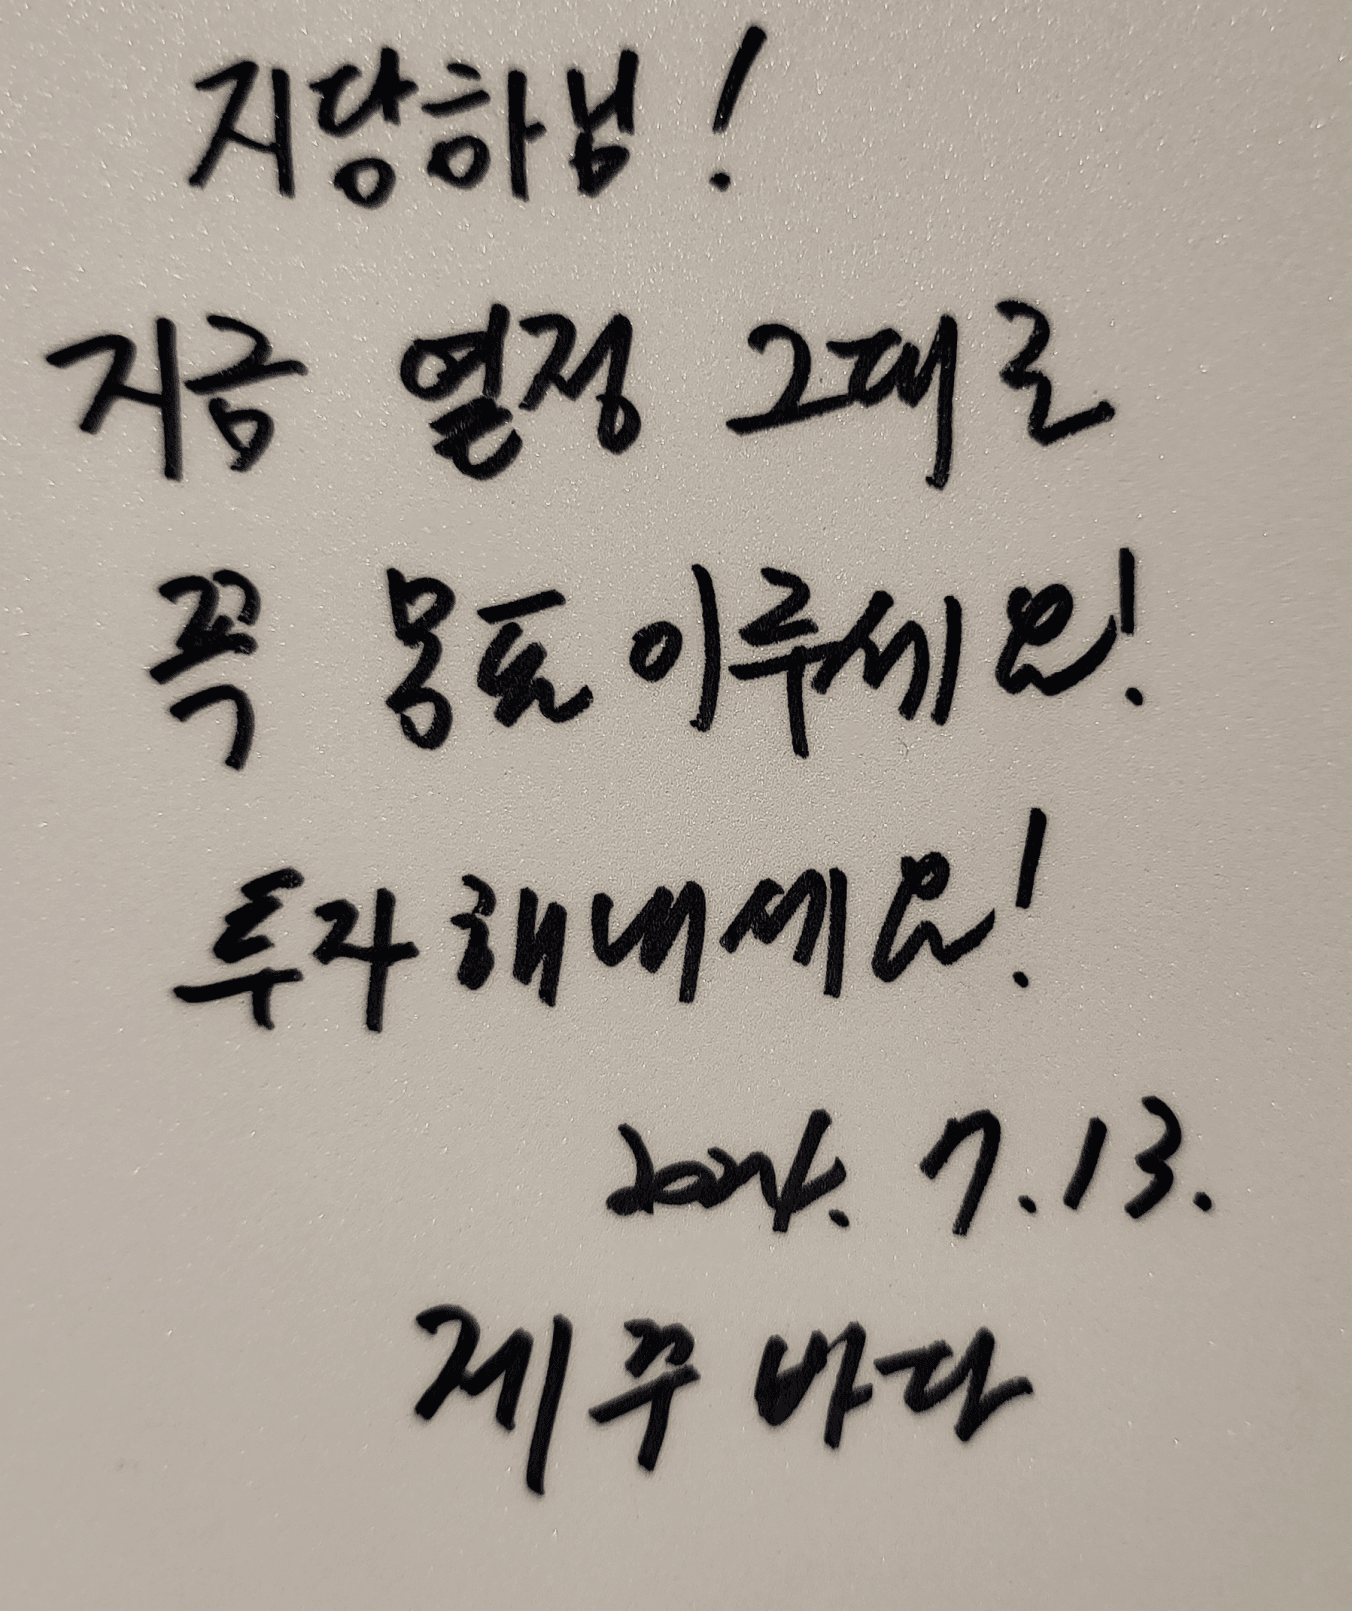 지당하님!
지금 열정 그대로
꼭 목표 이루세요!
투자해내세요!
2024. 7. 13.
제주바다